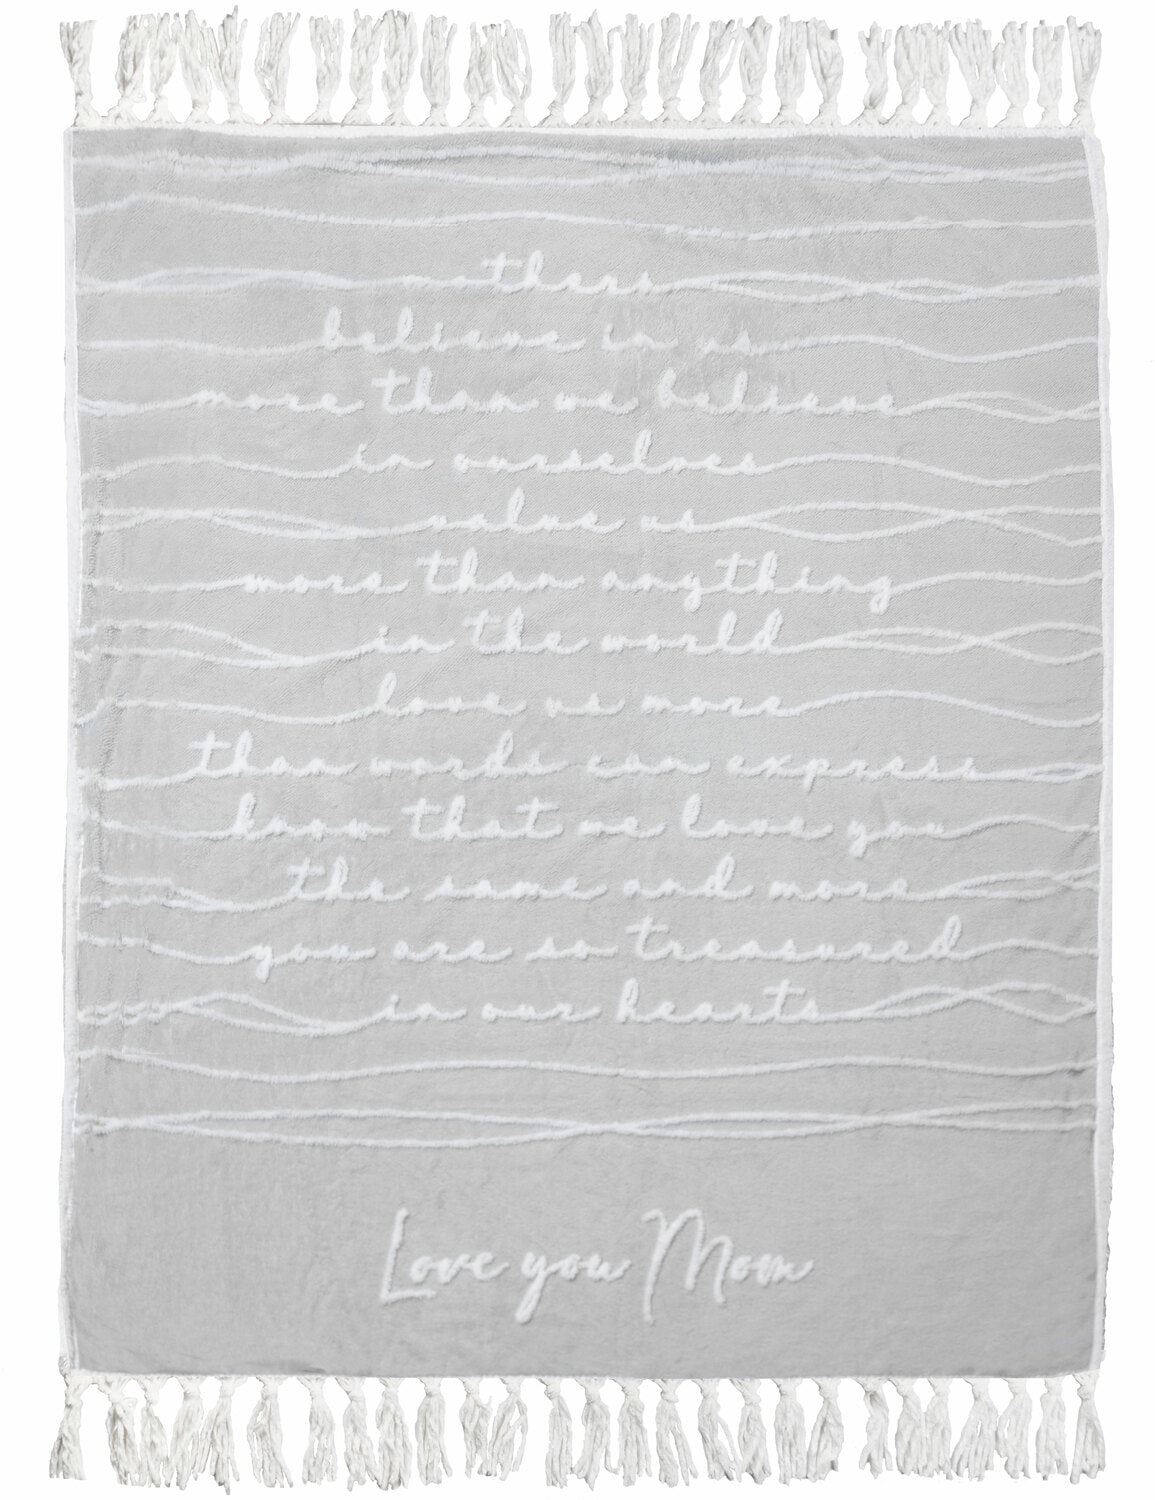 others
believe in us
more than we believe
in ourselves
value us
more than anything
in the world
love us more
than words can express
know that we love you
the same and more
you are so treasured
in our hearts
Love you Mom